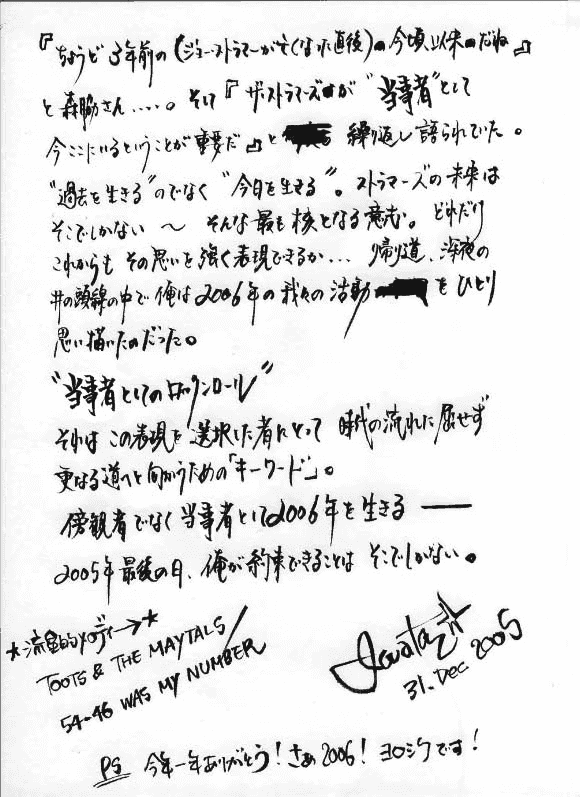 『ちょうど3年前の(ジョー・ストラマーが亡くなった直後)の今頃以来のだね』
と森脇さん‥‥。そして『ザ・ストラマーズが“当事者”として
今ここにいるということが重要だ』と 繰り返し語られていた。
“過去を生きる”のでなく“今日を生きる”。ストラマーズの未来は
そこでしかない～そんな最も核となる意志。どれだけ
これからもその思いを強く表現できるか…帰り道、深夜の
井の頭線の中で俺は2006年の我々の活動 をひとり
思い描いたのだった。
“当事者としてのロックンロール”
それはこの表現を選択した者にとって 時代の流れに屈せず
更なる道へと向かうための「キーワード」。
傍観者でなく当事者として2006年を生きる――
2005年最後の日、俺が約束できることは そこでしかない。
★流星的メロディー→★
TOOTS & THE MAYTALS/
54-46 WAS MY NUMBER
31. Dec 2005
PS 今年一年ありがとう!さあ2006!ヨロシクです!